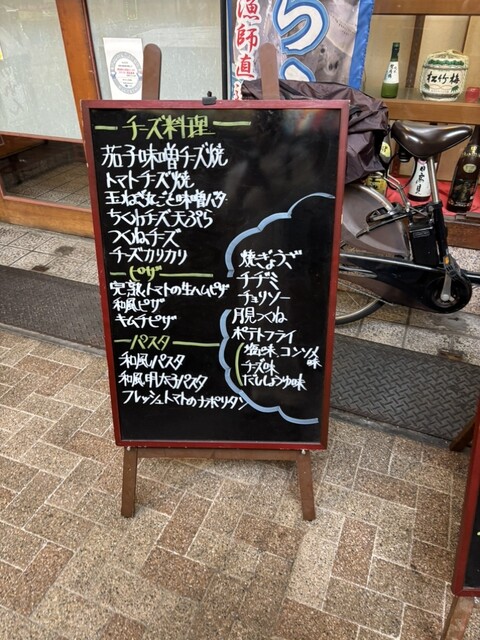 漁師直
松竹梅
チーズ料理
茄子味噌チーズ焼
トマトチーズ焼
玉ねぎ丸ごと味噌バター
ちくわチーズ天ぷら
つくねチーズ
チーズカリカリ
ピザ
完熟トマトの生ハムピザ
和風ピザ
キムチピザ
パスタ
和風パスタ
和風明太子パスタ
フレッシュトマトのナポリタン
焼ぎょうざ
チヂミ
チョリソー
月見つくね
ポテトフライ
塩味、コンソメ味
チーズ味
だししょうゆ味